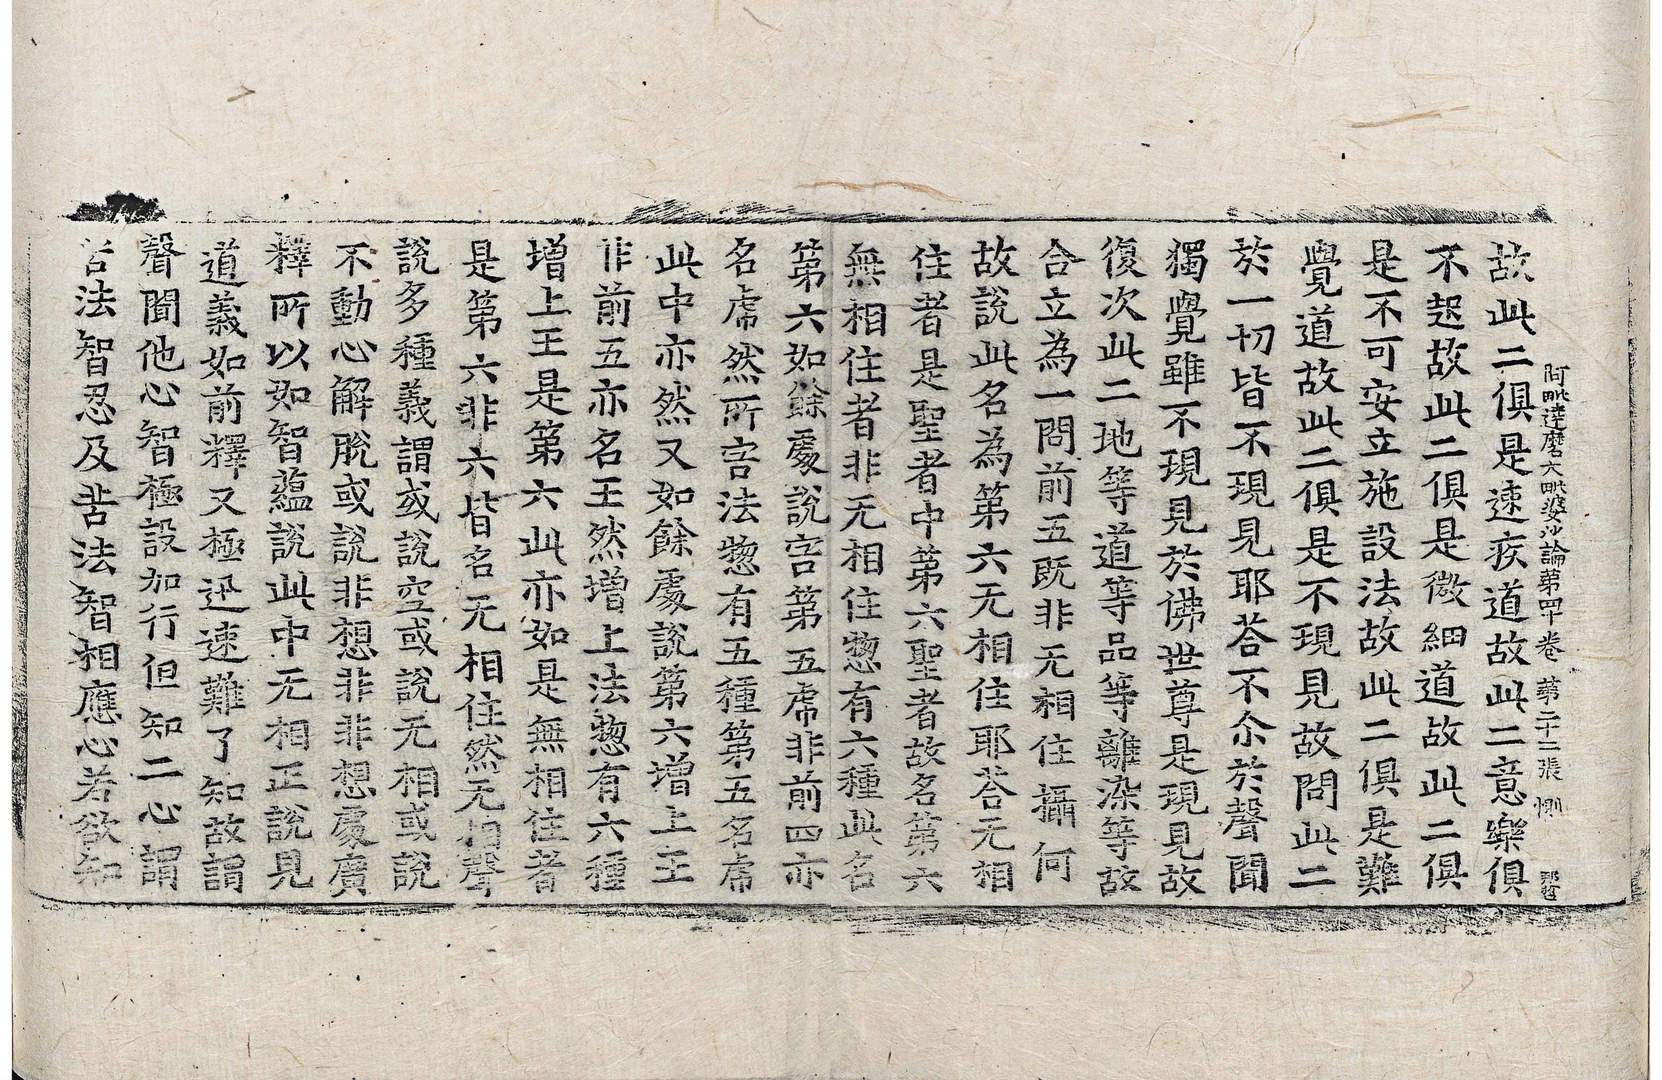 阿毗達磨大毗婆沙論第四十卷 第二十二張 惻
故此二俱是速疾道故此二意樂俱
不起故此二俱是微細道故此二俱
是不可安立施設法故此二俱是難
覺道故此二俱是不現見故問此二
於一切皆不現見耶荅不尒於聲聞
獨覺雖不現見於佛世尊是現見故
復次此二地等道等品等離染等故
合立為一問前五既非无相住攝何
故說此名為第六无相住耶荅无相
住者是聖者中第六聖者故名第六
無相住者非无相住惣有六種此名
第六如餘處說害第五虎非前四亦
名虎然所害法惣有五種第五名虎
此中亦然又如餘處說第六增上王
非前五亦名王然增上法惣有六種
增上王是第六此亦如是無相住者
是第六非六皆名无相住然无相聲
說多種義謂或說空或說无相或說
不動心解脫或說非想非非想處廣
釋所以如智蘊說此中无相正說見
道義如前釋又極迅速難了知故謂
聲聞他心智極設加行但知二心謂
苦法智忍及苦法智相應心若欲知